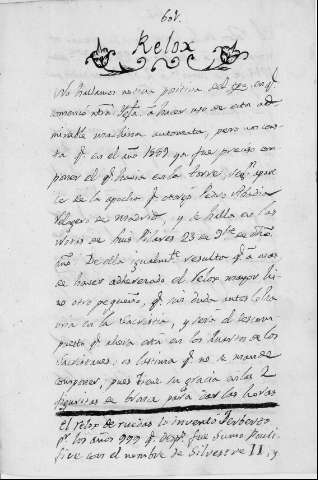 60v.
Relox
No hallamos noticia positiva del en q.
comenzó ntra. Ygla. á hacer uso de esta ad-
mirable machina automata, pero nos cons-
ta q. en el año 1689 ya fue preciso com-
poner el q. havia en la torre, segn. apare-
ce de la apocha q. otorgó Pedro
Relogero de Madrid, y se halla en las
de Luis 23 de 9bre. de dho.
año. De ella igualmte. resulto q. á mas
de haver adherezado el Relox mayor hi-
zo otro pequeño, q. sin duda antes esta-
ria en la Sacristia, y será el descom-
puesto q. ahora está en los Quartos de los
Sacristanes, es lastima q. no se mande
componer, pues tiene su gracia en las 2
figuritas de bronce para dar las horas
El relox de ruedas lo inventó Gerberto
pr. los años 999 q. desps. fue Sumo Ponti-
fice con el nombre de Silvestre II, y